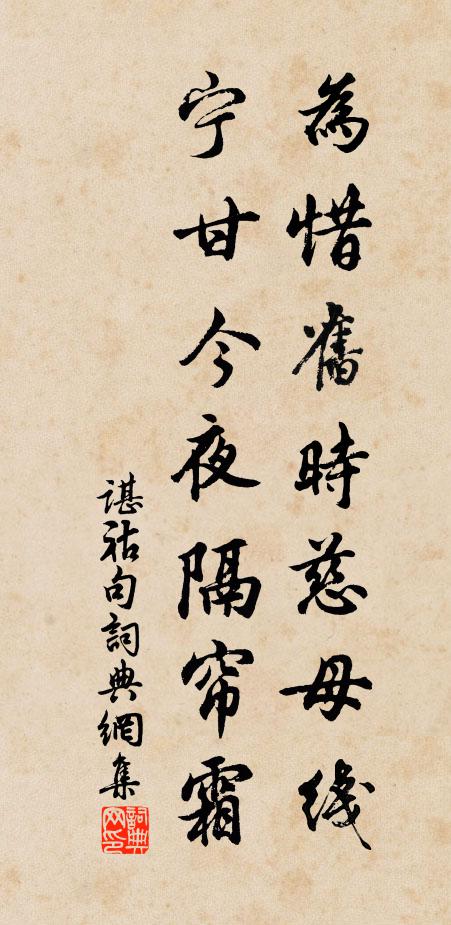 為惜舊時慈母线
宁甘今夜隔帘霜
谌祜句詞典網集
詞典网印